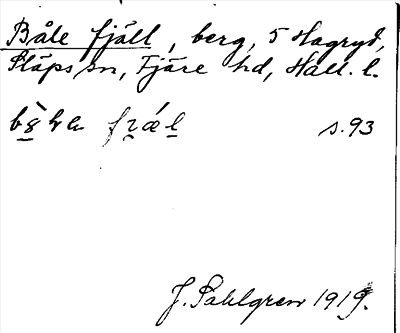 Båle fjäll, berg, 5 Hagryd,
Släps sn, Fjäre hd, Hall. l.
s. 93
J. Sahlgren 1919.